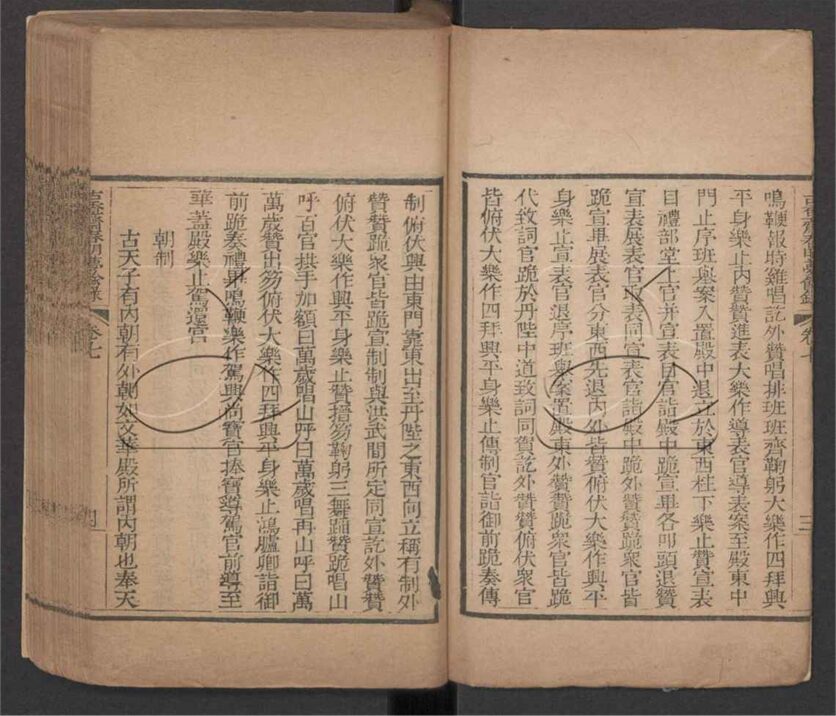 鳴鞭報時雞唱訖外贊唱排班班齊鞠躬大樂作四拜興
平身樂止內贊贊進表大樂作導表官導表案至殿東中
門止序班舉案入置殿中退立於東西柱下樂止贊宣表
目禮部堂上官并宣表目官詣殿中跪宣畢各叩頭退贊
宣表展表官取表同宣表官詣殿中跪外贊贊跪眾官皆
跪宣畢展表官分東西先退內外皆贊俯伏大樂作興平
身樂止宣表官退序班舉案置殿東外贊贊跪眾官皆跪
代致詞官跪於丹陛中道致詞同賀訖外贊贊俯伏眾官
皆俯伏大樂作四拜興平身樂止傳制官詣御前跪奏傳
古香齋春明夢餘錄 卷七 三
制俯伏興由東門靠東出至丹陛之東西向立稱有制外
贊贊跪眾官皆跪宣制制與洪武間所定同宣訖外贊贊
俯伏大樂作興平身樂止贊搢笏鞠躬三舞蹈贊跪唱山
呼百官拱手加額曰萬歲唱山呼曰萬歲唱再山呼曰萬
萬歲贊出笏俯伏大樂作四拜興平身樂止鴻臚卿詣御
前跪奏禮畢鳴鞭樂作駕興尚寶官捧寶導駕官前導至
華蓋殿樂止駕還宮
朝制
古天子有內朝有外朝如文華殿所謂內朝也奉天
古香齋春明夢餘錄 卷七 四